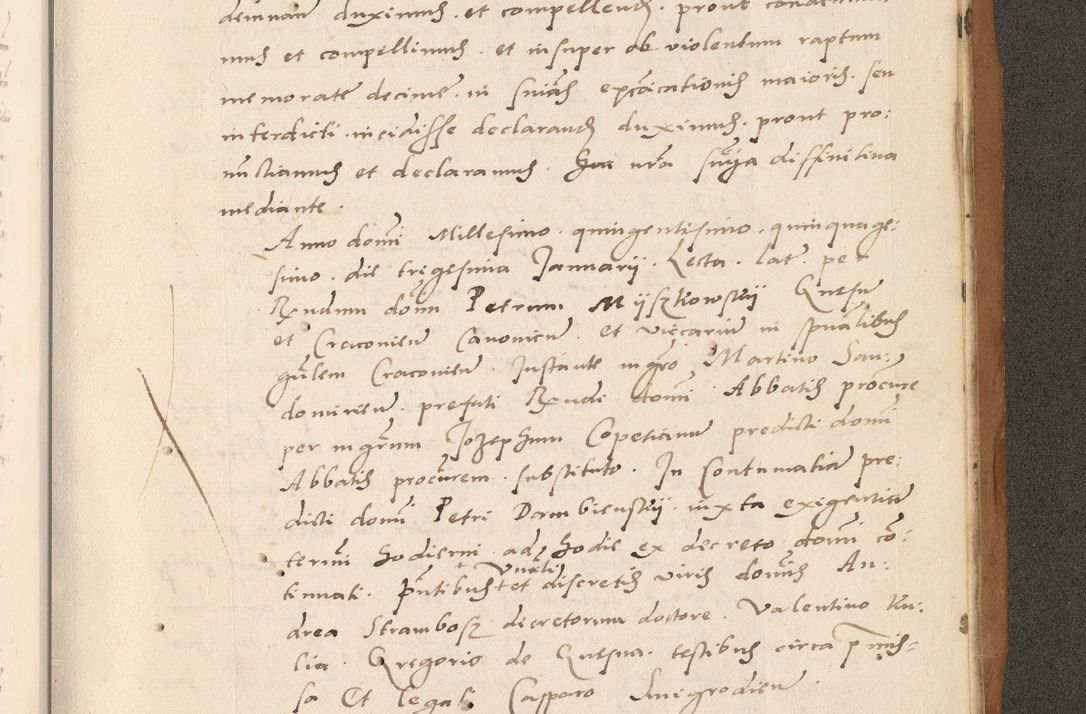 demnan duximus et compellend. prout condem
mus et compellimus. et insuper ob violentum raptum
memorate decime. in sniãs excõicationis maioris. seu
interdicti. incidisse declarand duximus. prout pro:
nũctiamus et declaramus. hac nrã snĩa diffinitiva
mediante.
Anno domĩ Millesimo. quingentisimo. quinquage:
simo. die trigesima Januarij. Lecta. lat. per
Rndum domñ Petrum Mijszkowskij Gnesn
et Cracovien Canonicu. et vicarium in spũalibus
gñlem Cracovien. Instante mgrõ Martino San:
domirien. prefati Rndi domĩ Abbatis procure
per mgrũm Jozephum Copetianu predicti domĩ
Abbatis procũrem. substituto. In contumatia pre:
dicti domĩ Petri Dembienskij. iuxta exigentia
termĩni hodierni ad hodie ex decreto domĩ cõ:
tinuati. Pñtibus et discretis viris domĩs An:
drea Strambosz decretorum doctore. Valentino Ku:
lia. Gregorio de Gnesna. testibus circa p̃mis=
sa Et legati Casparo Snigrodien.